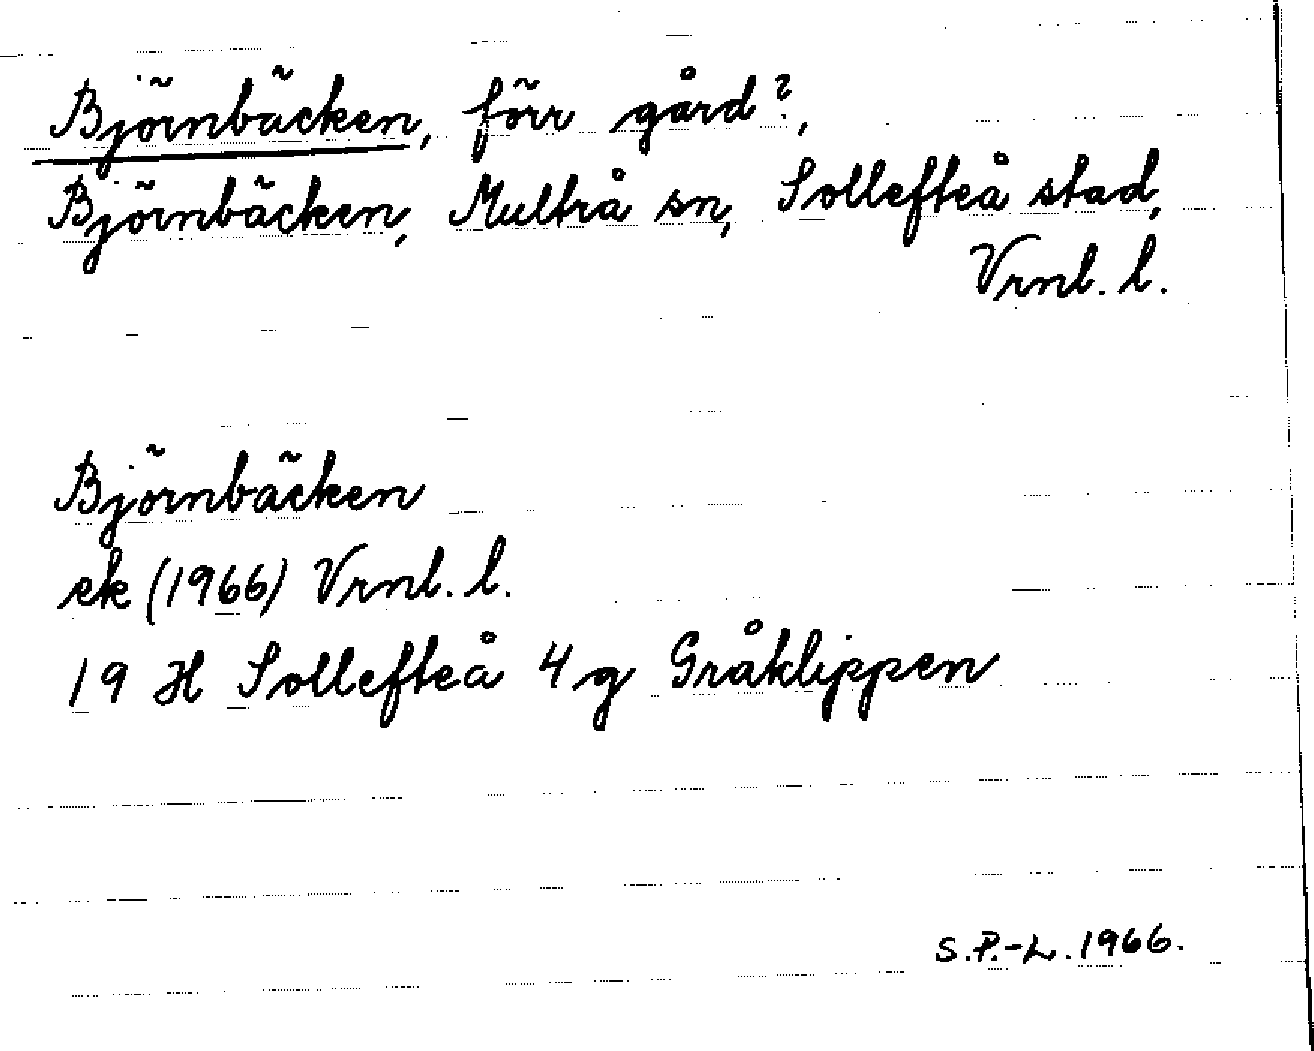 Björnbäcken, förr gård?,
Björnbäcken, Multrå sn, Sollefteå stad,
Vrnl. l.
Björnbäcken
ek (1966) Vrnl. l.
19 H Sollefteå 4 g Gråklippen
S.P.-L. 1966.